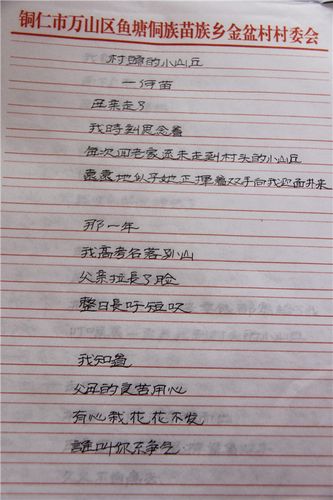 铜仁市万山区鱼塘侗族苗族乡金盆村村委会
村头的小山丘
一何苗
母亲走了
我时刻思念着
每次回老家还未走到村头的小山丘
远远地似乎她正挥着双手向我迎面扑来
那一年
我高考名落孙山
父亲拉長了脸
整日長吁短叹
我知道
父母的良苦用心
有心栽花花不发
誰叫你不争气